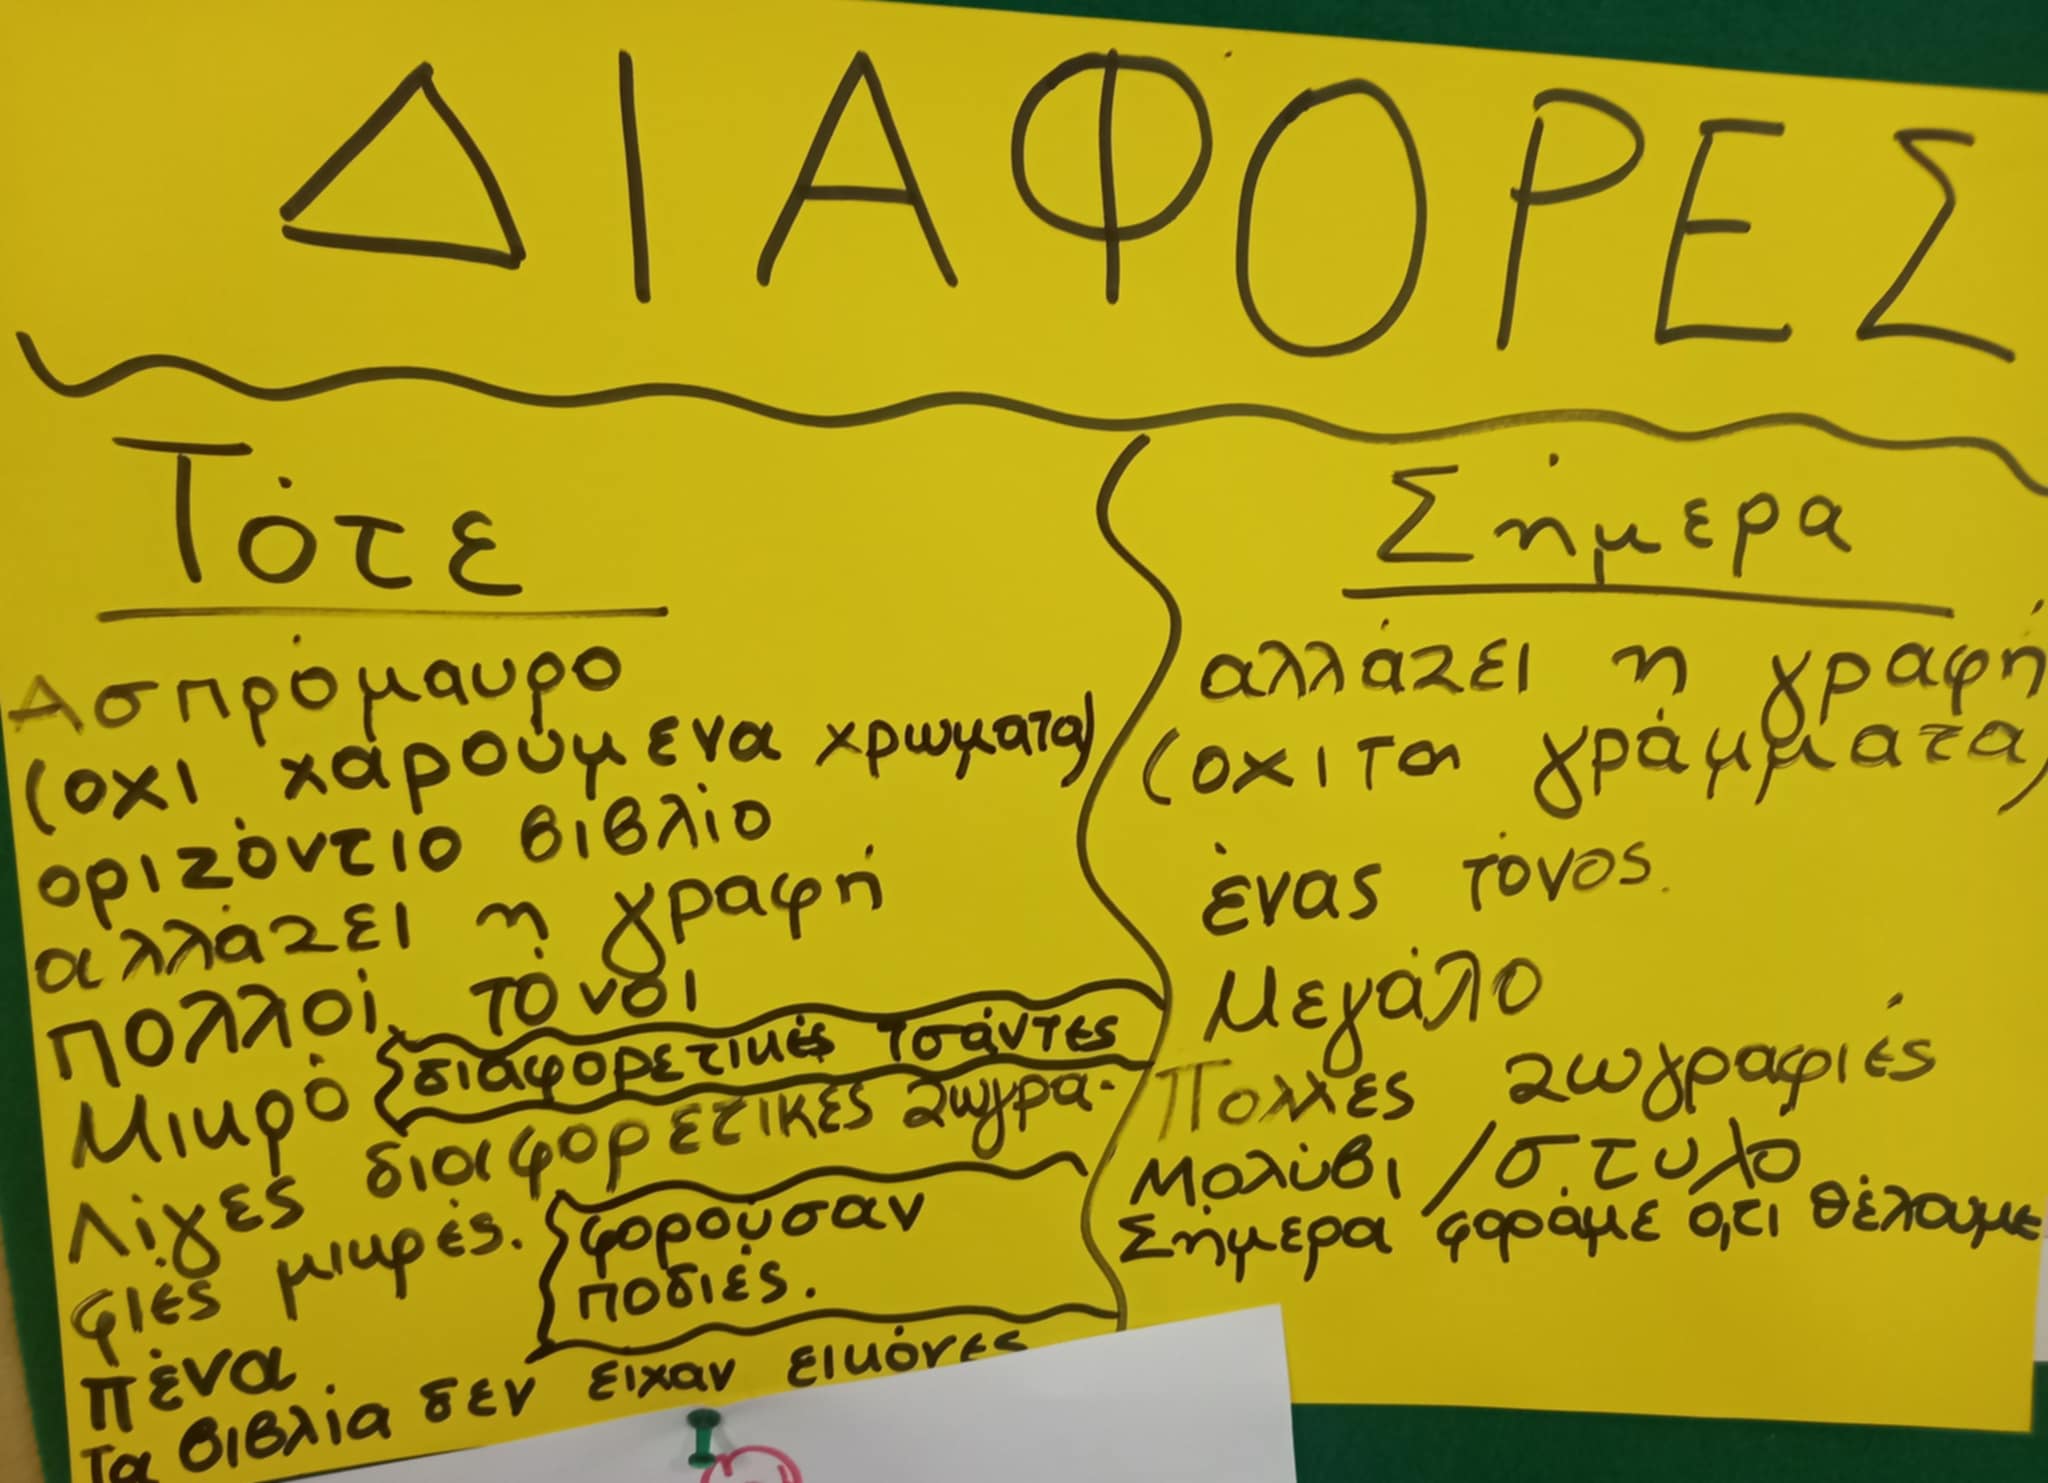 ΔΙΑΦΟΡΕΣ
Τότε
Ασπρόμαυρο
(οχι χαρούμενα χρωματα)
οριζόντιο βιβλίο
αλλάζει η γραφή
πολλοί τόνοι
Μικρό
διαφορετικές τσάντες
Λίγες διαφορετικές ζωγρα-
φιές μικρές.
φορούσαν
ποδιές.
πένα
Τα βιβλία δεν ειχαν εικόνες
Σήμερα
αλλάζει η γραφή
(οχι τα γράμματα)
ένας τόνος.
Μεγάλο
Πολλες ζωγραφιές
Μολύβι / στυλο
Σήμερα φοράμε ό,τι θέλουμε